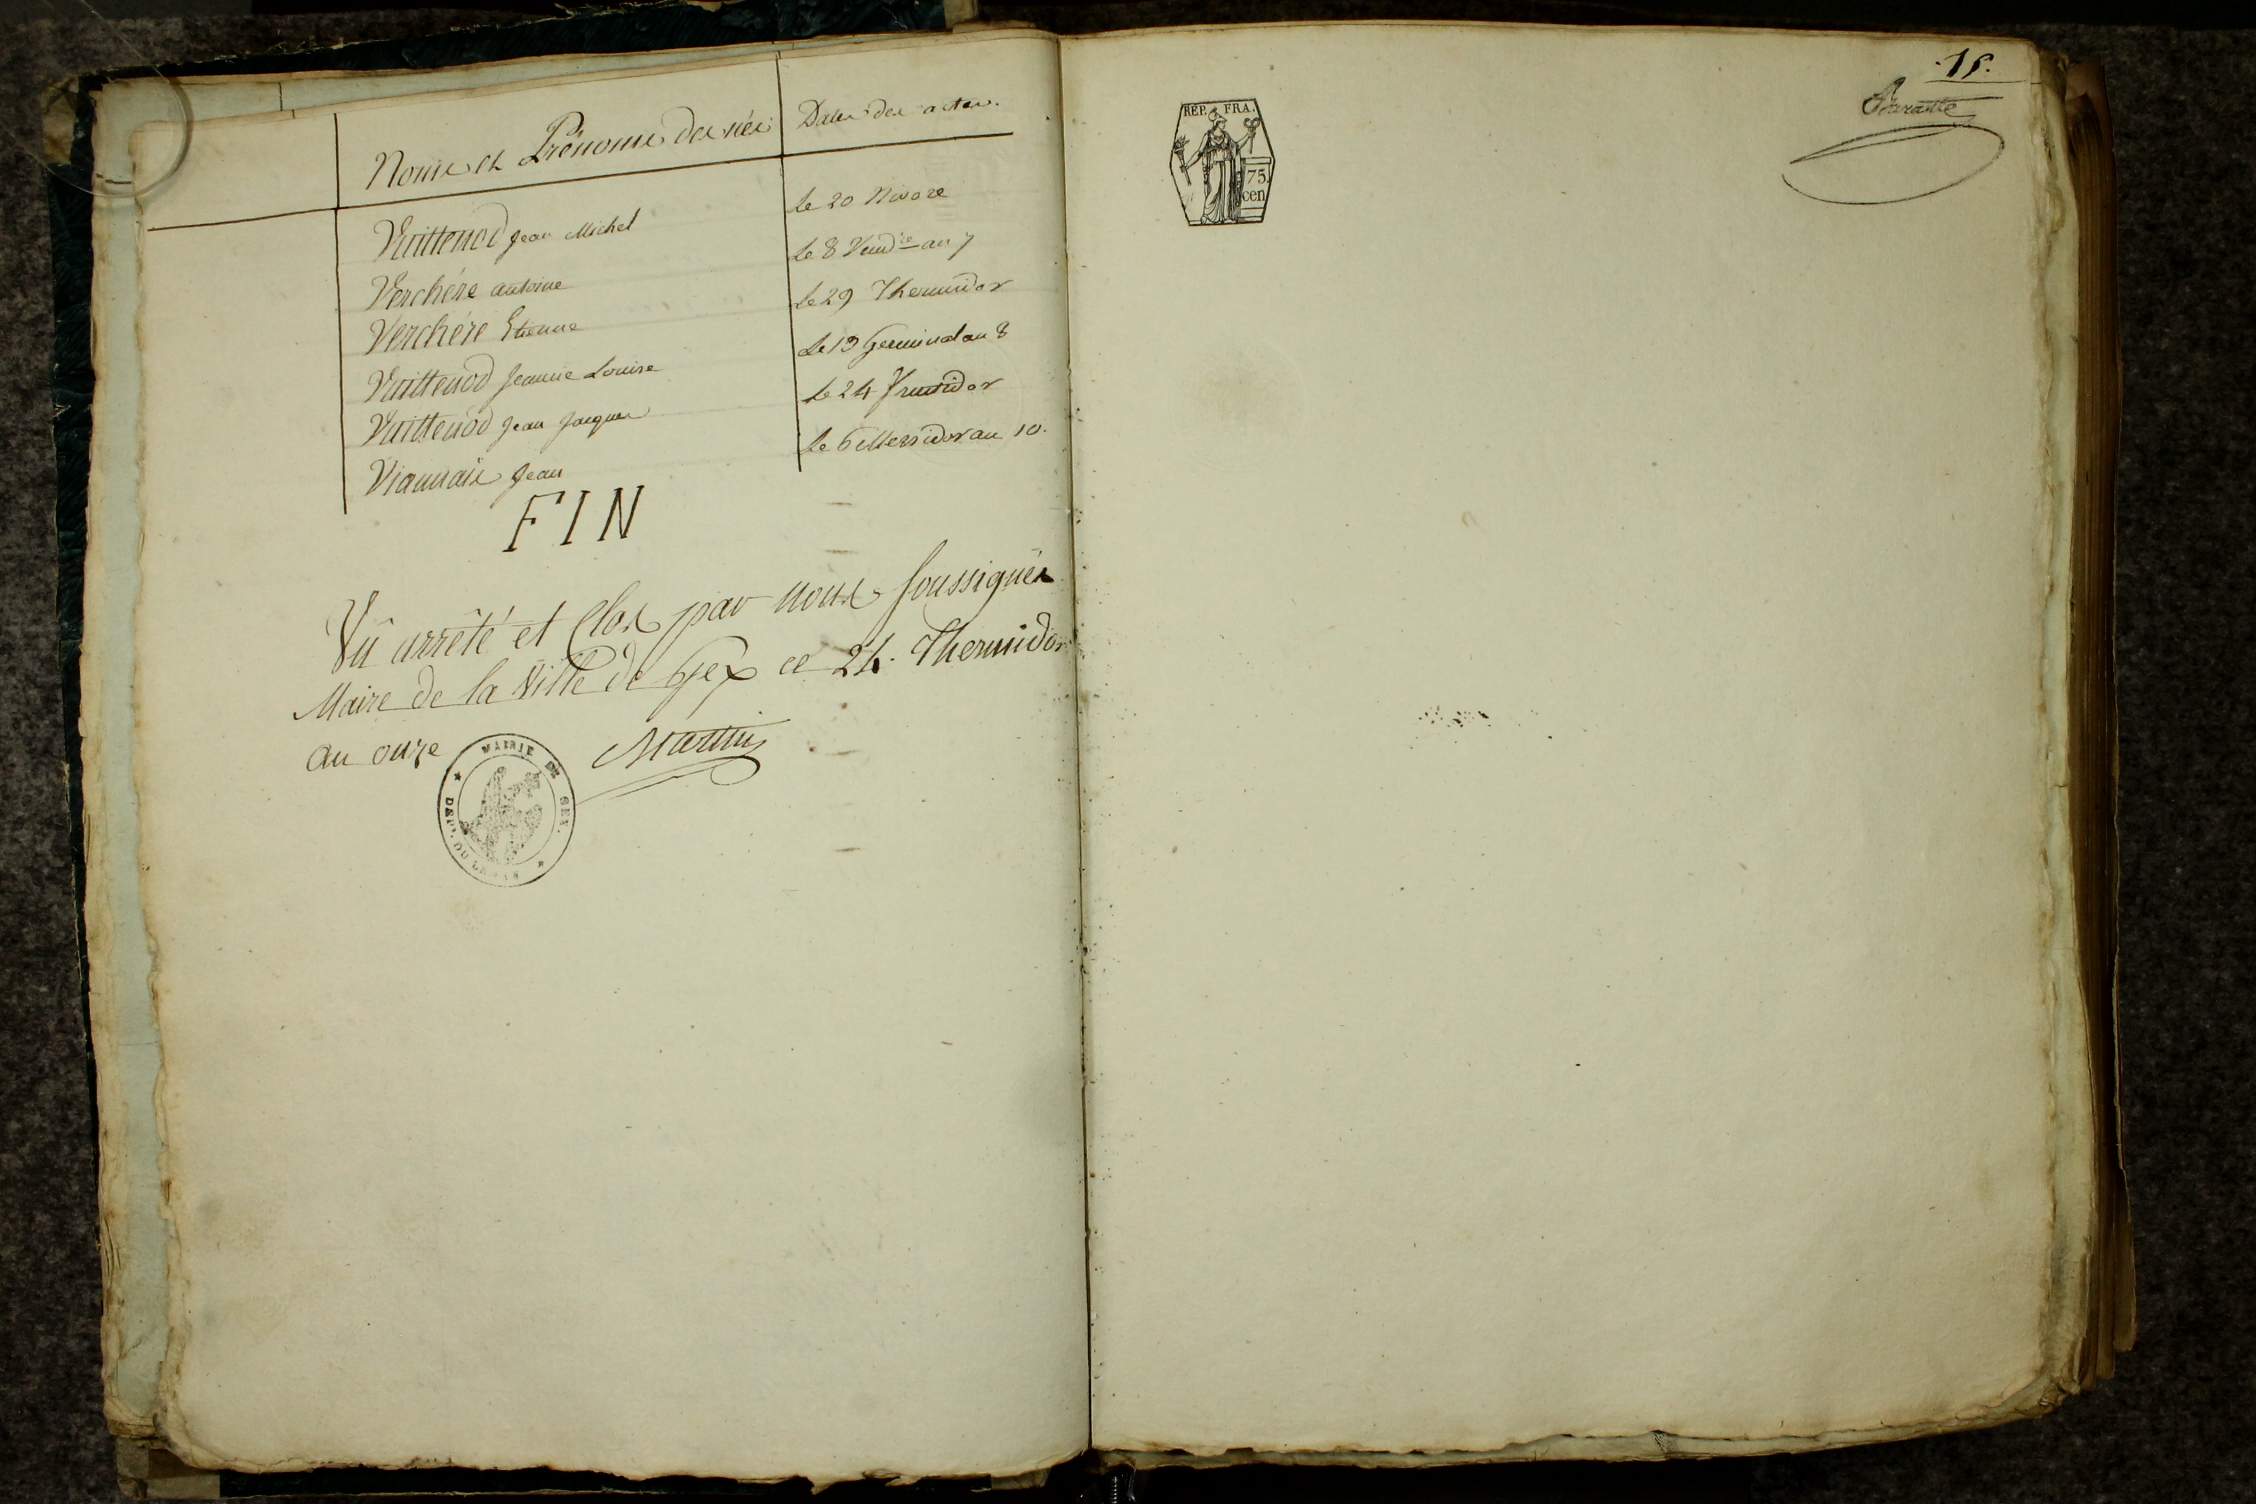 Noms et Prénoms des nés Dates des actes.
Vuittenod Jean Michel le 20 Nivose
Verchére antoine le 8 Vend.re an 7
Verchére Etienne le 29 Thermidor
Vuittenod Jeanne Louise le 19 Germinal an 8
Vuittenod Jean Jacques le 24 Fructidor
Viannaix Jean le 6 Messidor an 10.
FIN
Vû arrêté et Clos par nous soussignés
Maire de la Ville de Gex ce 24. Thermidor
an onze Martin
MAIRIE DE GEX.
DEPT. DU LEMAN
15.
REP. FRA.
75.
cen